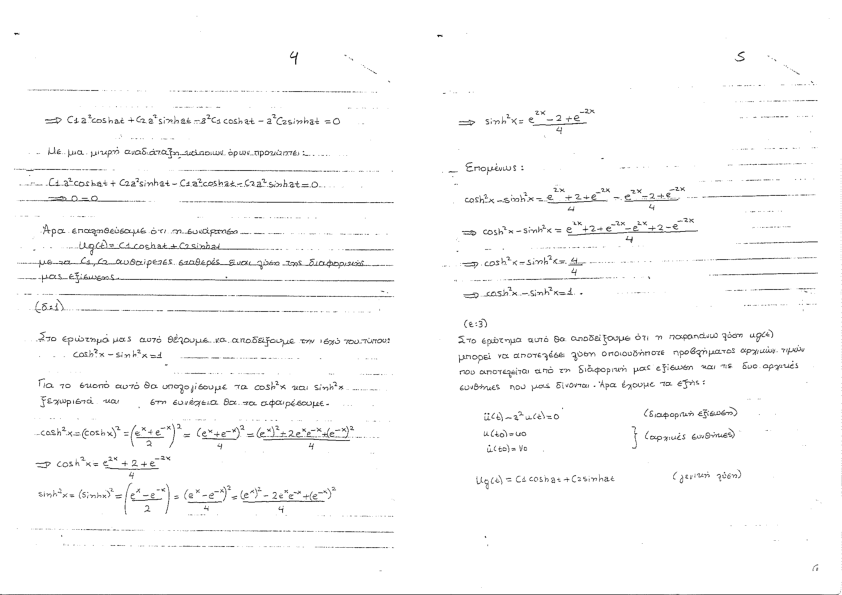 4
⟹ C1a²coshat + C2a²sinhat - a²C1coshat - a²C2sinhat = 0
Με μια μικρή αναδιάταξη κάποιων όρων προκύπτει:
C1a²coshat + C2a²sinhat - C1a²coshat - C2a²sinhat = 0
⟹ 0 = 0
Άρα επαληθεύσαμε ότι η συνάρτηση
ug(t) = C1coshat + C2sinhat
με τα C1, C2 αυθαίρετες σταθερές είναι λύση της διαφορικής
μας εξίσωσης.
(δ:1)
Στο ερώτημά μας αυτό θέλουμε να αποδείξουμε την ισχύ του τύπου:
cosh²x - sinh²x = 1
Για το σκοπό αυτό θα υπολογίσουμε τα cosh²x και sinh²x
ξεχωριστά και στη συνέχεια θα τα αφαιρέσουμε.
cosh²x = (coshx)² = ((e^x + e^-x)/2)² = (e^x + e^-x)²/4 = ((e^x)² + 2e^x e^-x + (e^-x)²)/4
⟹ cosh²x = (e^2x + 2 + e^-2x)/4
sinh²x = (sinhx)² = ((e^x - e^-x)/2)² = (e^x - e^-x)²/4 = ((e^x)² - 2e^x e^-x + (e^-x)²)/4
5
⟹ sinh²x = (e^2x - 2 + e^-2x)/4
Επομένως:
cosh²x - sinh²x = (e^2x + 2 + e^-2x)/4 - (e^2x - 2 + e^-2x)/4
⟹ cosh²x - sinh²x = (e^2x + 2 + e^-2x - e^2x + 2 - e^-2x)/4
⟹ cosh²x - sinh²x = 4/4
⟹ cosh²x - sinh²x = 1.
(ε:3)
Στο ερώτημα αυτό θα αποδείξουμε ότι η παραπάνω λύση ug(t)
μπορεί να αποτελέσει λύση οποιουδήποτε προβλήματος αρχικών τιμών
που αποτελείται από τη διάφορική μας εξίσωση και τις δυο αρχικές
συνθήκες που μας δίνονται. Άρα έχουμε τα εξής:
ü(t) - a²u(t) = 0 (διαφορική εξίσωση)
u(t0) = u0
} (αρχικές συνθήκες)
u̇(t0) = v0
ug(t) = C1coshat + C2sinhat (γενική λύση)